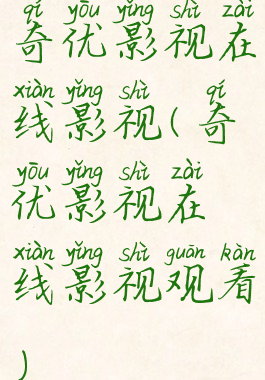 qí yōu yǐng shì zài
奇优影视在
xiàn yǐng shì qí
线影视(奇
yōu yǐng shì zài
优影视在
xiàn yǐng shì guān kàn
线影视观看
)